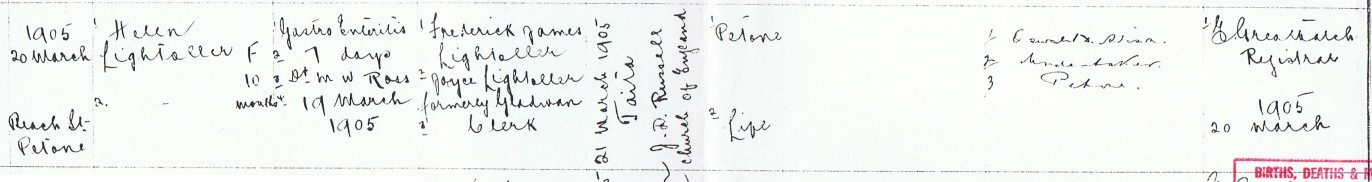 1905
20 March
Reach St
Petone
1 Helen
Lightoller
2. -
F
10
months
1 Gastro Enteritis
2 7 days
3 Dr M W Ross
4 19 March
1905
1 Frederick James
Lightoller
2 Joyce Lightoller
formerly
3 Clerk
21 March 1905
Taita
J. R. Russell
Church of England
1 Petone
2 Life
1
2 Undertaker.
3 Petone.
1 E Greatbatch
Registrar
1905
20 March
BIRTHS, DEATHS &